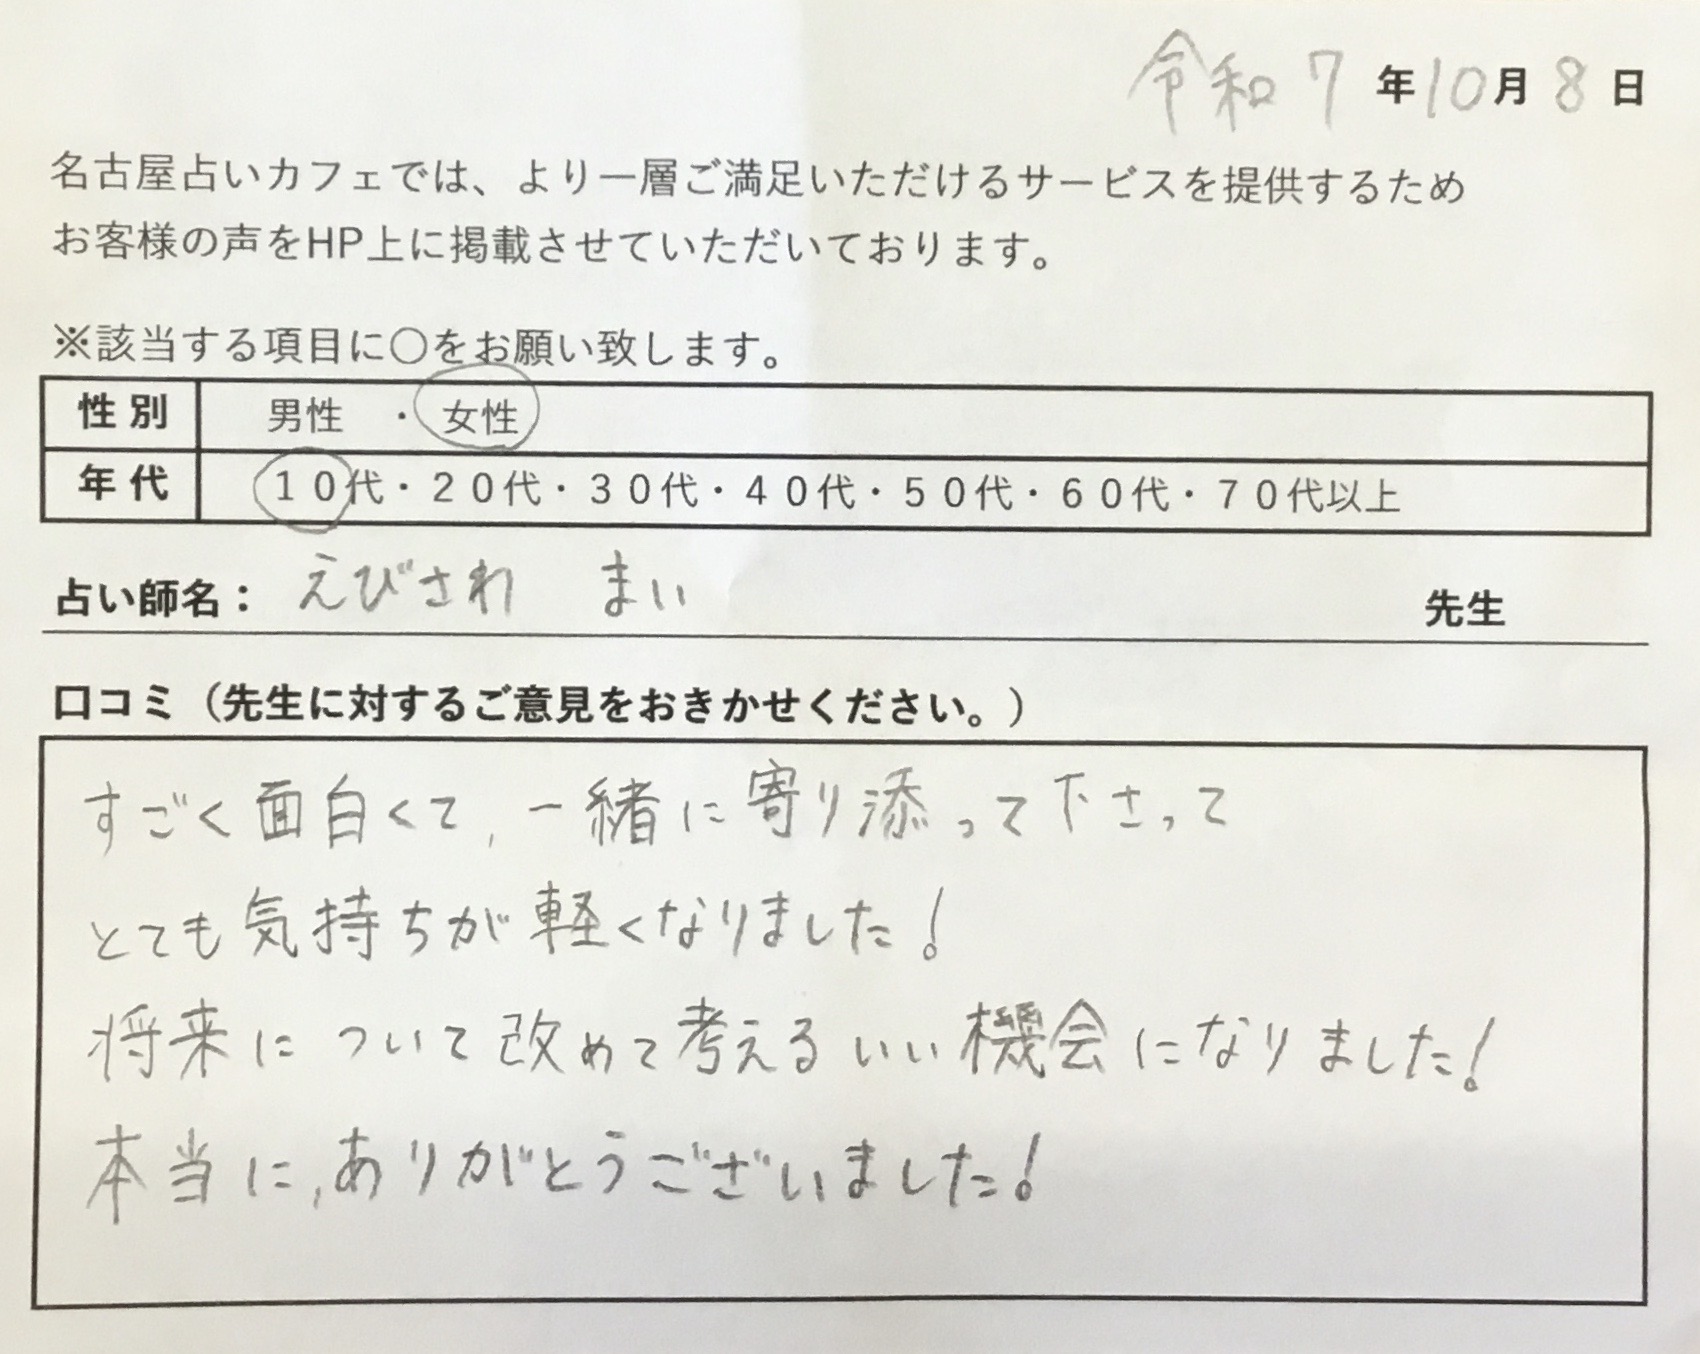 令和7年10月8日
名古屋占いカフェでは、より一層ご満足いただけるサービスを提供するため
お客様の声をHP上に掲載させていただいております。
※該当する項目に〇をお願い致します。
性別 男性 ・ 女性
年代 10代・20代・30代・40代・50代・60代・70代以上
占い師名： えびさわ まい 先生
口コミ（先生に対するご意見をおきかせください。）
すごく面白くて、一緒に寄り添って下さって
とても気持ちが軽くなりました!
将来について改めて考えるいい機会になりました!
本当に、ありがとうございました!